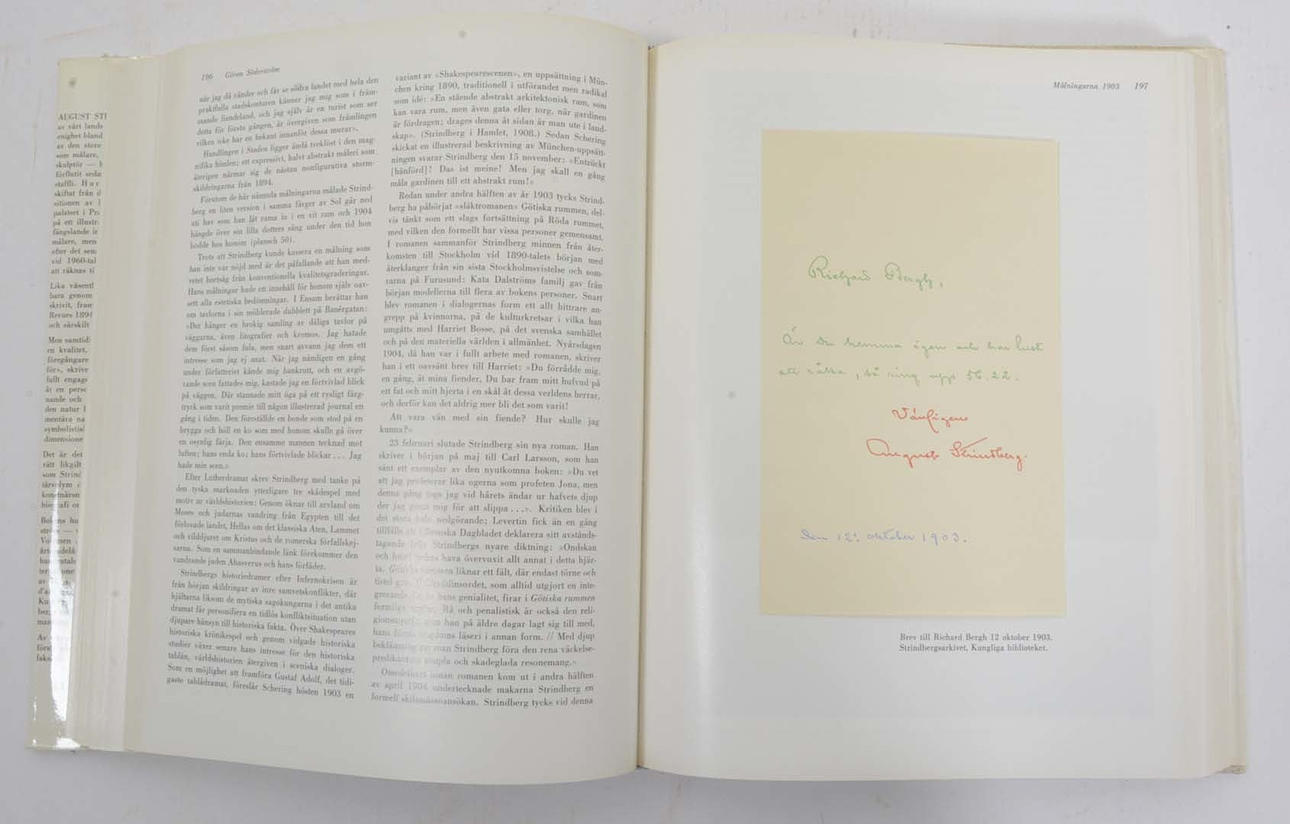 AUGUST STI
av vårt lands
enighet bland
av den store
som målare,
förflutit seda
skiftat från d
sitionen av
på ett illustr
målare, men
efter det sen
vid 1960-tal
att räknas ti
bara genom
skrivit, fram
Revues 1894
och särskilt
Men samtidi
en kvalitet,
föregångare
för», skrive
fullt engage
nande och
den natur
mentära na
symbolistisl
dimensione
Det är det
rätt likgilt
som Strind
196 Göran Söderström
när jag då vänder och får se södra landet med hela den
praktfulla stadskonturen känner jag mig som i främ-
mande fiendeland, och jag själv är en turist som ser
detta för första gången, är övergiven som främlingen
vilken icke har en bekant innanför dessa murar».
Handlingen i Staden ligger ändå tveklöst i den mag-
nifika himlen; ett expressivt, halvt abstrakt måleri som
återigen närmar sig de nästan nonfigurativa storm-
skildringarna från 1894.
Förutom de här nämnda målningarna målade Strind-
berg en liten version i samma färger av Sol går ned
ett hav som han lät rama in i en vit ram och 1904
hängde över sin lilla dotters säng under den tid hon
bodde hos honom (plansch 50).
Trots att Strindberg kunde kassera en målning som
han inte var nöjd med är det påfallande att han med-
vetet bortsåg från konventionella kvalitetsgraderingar.
Hans målningar hade ett innehåll för honom själv oav-
sett alla estetiska bedömningar. I Ensam berättar han
om tavlorna i sin möblerade dubblett på Banérgatan:
»Det hänger en brokig samling av dåliga tavlor på
väggarna, även litografier och kromos. Jag hatade
dem först såsom fula, men snart avvann jag dem ett
intresse som jag ej anat. När jag nämligen en gång
under författeriet kände mig bankrutt, och en avgö-
rande scen fattades mig, kastade jag en förtvivlad blick
på väggen. Där stannade mitt öga på ett rysligt färg-
tryck som varit premie till någon illustrerad journal en
gång i tiden. Den föreställde en bonde som stod på en
brygga och höll en ko som med honom skulle gå över
en osynlig färja. Den ensamme mannen tecknad mot
luften; hans enda ko; hans förtvivlade blickar . . . Jag
hade min scen.»
Efter Lutherdramat skrev Strindberg med tanke på
den tyska marknaden ytterligare tre skådespel med
motiv ur världshistorien: Genom öknar till arvland om
Moses och judarnas vandring från Egypten till det
förlovade landet, Hellas om det klassiska Aten, Lammet
och vilddjuret om Kristus och de romerska förfallskej-
sarna. Som en sammanbindande länk förekommer den
vandrande juden Ahasverus och hans förfäder.
Strindbergs historiedramer efter Infernokrisen är
från början skildringar av inre samvetskonflikter, där
hjältarna liksom de mytiska sagokungarna i det antika
dramat får personifiera en tidlös konfliktsituation utan
djupare hänsyn till historiska fakta. Över Shakespeares
historiska krönikespel och genom vidgade historiska
studier växer senare hans intresse för den historiska
tablån, världshistorien återgiven i sceniska dialoger.
Som en möjlighet att framföra Gustaf Adolf, det tidi-
gaste tablådramat, föreslår Schering hösten 1903 en
variant av »Shakespearescenen», en uppsättning i Mün-
chen kring 1890, traditionell i utförandet men radikal
som idé: »En stående abstrakt arkitektonisk ram, som
kan vara rum, men även gata eller torg, när gardinen
är fördragen; drages denna åt sidan är man ute i land-
skap». (Strindberg i Hamlet, 1908.) Sedan Schering
skickat en illustrerad beskrivning av München-uppsätt-
ningen svarar Strindberg den 15 november: »Entrückt
[hänförd]! Das ist meine! Men jag skall en gång
måla gardinen till ett abstrakt rum!»
Redan under andra hälften av år 1903 tycks Strind-
berg ha påbörjat »släktromanen» Götiska rummen, del-
vis tänkt som ett slags fortsättning på Röda rummet,
med vilken den formellt har vissa personer gemensamt.
I romanen sammanför Strindberg minnen från åter-
komsten till Stockholm vid 1890-talets början med
återklanger från sin sista Stockholmsvistelse och som-
rarna på Furusund: Kata Dalströms familj gav från
början modellerna till flera av bokens personer. Snart
blev romanen i dialogernas form ett allt bittrare an-
grepp på kvinnorna, på de kulturkretsar i vilka han
umgåtts med Harriet Bosse, på det svenska samhället
och på den materiella världen i allmänhet. Nyårsdagen
1904, då han var i fullt arbete med romanen, skriver
han i ett oavsänt brev till Harriet: »Du förrådde mig,
en gång, åt mina fiender, Du bar fram mitt hufvud på
ett fat och mitt hjerta i en skål åt dessa verldens herrar,
och derför kan det aldrig mer bli det som varit!
Att vara vän med sin fiende? Hur skulle jag
kunna?»
23 februari slutade Strindberg sin nya roman. Han
skriver i början på maj till Carl Larsson, som han
sänt ett exemplar av den nyutkomna boken: »Du vet
att jag profeterar lika ogerna som profeten Jona, men
denna gång togs jag vid hårets ändar ur hafvets djup
der jag gömt mig för att slippa . . .». Kritiken blev i
det stora hela nedgörande; Levertin fick än en gång
tillfälle att i Svenska Dagbladet deklarera sitt avstånds-
tagande från Strindbergs nyare diktning: »Ondskan
och hatet hava övervuxit allt annat i detta hjär-
ta. liknar ett fält, där endast törne och
tistel
genialitet, firar i Götiska rummen
Rå och penalistisk är också den reli-
han på äldre dagar lagt sig till med,
läseri i annan form. // Med djup
Strindberg föra den rena väckelse-
och skadeglada resonemang.»
romanen kom ut i andra hälften
av april 1904 undertecknade makarna Strindberg en
formell skilsmässoansökan. Strindberg tycks vid denna
Målningarna 1903 197
Richard Bergh,
Är Du hemma ägen och har lust
att råka, så ring upp 56.22.
Vänligen
August Strindberg.
Den 12e oktober 1903.
Brev till Richard Bergh 12 oktober 1903.
Strindbergsarkivet, Kungliga biblioteket.